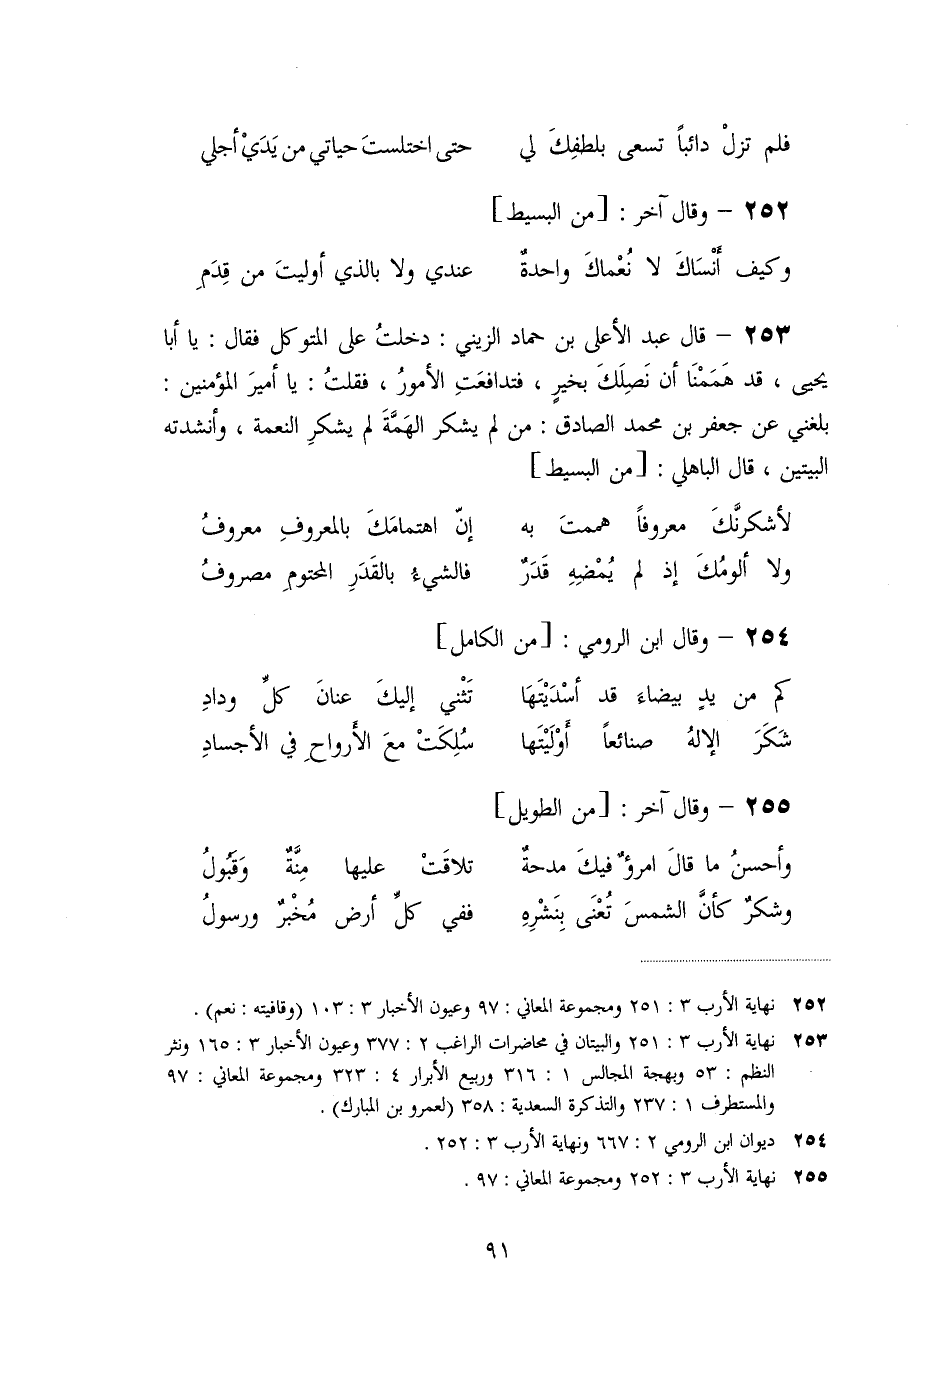 فلم تزلْ دائباً تسعى بلطفِكَ لي حتى اختلستَ حياتي من يَدَيْ أجلي
٢٥٢ – وقال آخر : [من البسيط]
وكيف أَنْسَاكَ لا نُعْماكَ واحدةٌ عندي ولا بالذي أوليتَ من قِدَمِ
٢٥٣ – قال عبد الأعلى بن حماد الزيني : دخلتُ على المتوكل فقال : يا أبا
يحيى ، قد هَمَمْنَا أن نَصِلَكَ بخيرٍ ، فتدافعَتِ الأمورُ ، فقلتُ : يا أميرَ المؤمنين :
بلغني عن جعفر بن محمد الصادق : من لم يشكر الهَمَّةَ لم يشكرِ النعمة ، وأنشدته
البيتين ، قال الباهلي : [من البسيط]
لأشكرنَّكَ معروفاً هممتَ به إنّ اهتمامَكَ بالمعروفِ معروفُ
ولا ألومُكَ إذ لم يُمْضِهِ قَدَرٌ فالشيءُ بالقَدَرِ المحتومِ مصروفُ
٢٥٤ – وقال ابن الرومي : [من الكامل]
كم من يدٍ بيضاءَ قد أسْدَيْتَهَا تَثْني إليكَ عنانَ كلِّ ودادِ
شَكَرَ الإلهُ صنائعاً أَوْلَيْتَها سُلِكَتْ معَ الأرواحِ في الأجسادِ
٢٥٥ – وقال آخر : [من الطويل]
وأحسنُ ما قالَ امرؤٌ فيكَ مدحةٌ تلاقَتْ عليها مِنَّةٌ وَقَبُولُ
وشكرٌ كأنَّ الشمسَ تُعْنَى بِنَشْرِهِ ففي كلِّ أرض مُخْبرٌ ورسولُ
٢٥٢ نهاية الأرب ٣ : ٢٥١ ومجموعة المعاني : ٩٧ وعيون الأخبار ٣ : ١٠٣ (وقافيته : نعم) .
٢٥٣ نهاية الأرب ٣ : ٢٥١ والبيتان في محاضرات الراغب ٢ : ٣٧٧ وعيون الأخبار ٣ : ١٦٥ ونثر
النظم : ٥٣ وبهجة المجالس ١ : ٣١٦ وربيع الأبرار ٤ : ٣٢٣ ومجموعة المعاني : ٩٧
والمستطرف ١ : ٢٣٧ والتذكرة السعدية : ٣٥٨ (لعمرو بن المبارك) .
٢٥٤ ديوان ابن الرومي ٢ : ٦٦٧ ونهاية الأرب ٣ : ٢٥٢ .
٢٥٥ نهاية الأرب ٣ : ٢٥٢ ومجموعة المعاني : ٩٧ .
٩١